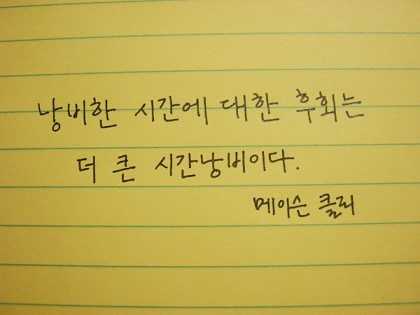 낭비한 시간에 대한 후회는
더 큰 시간낭비이다.
메이슨 쿨리